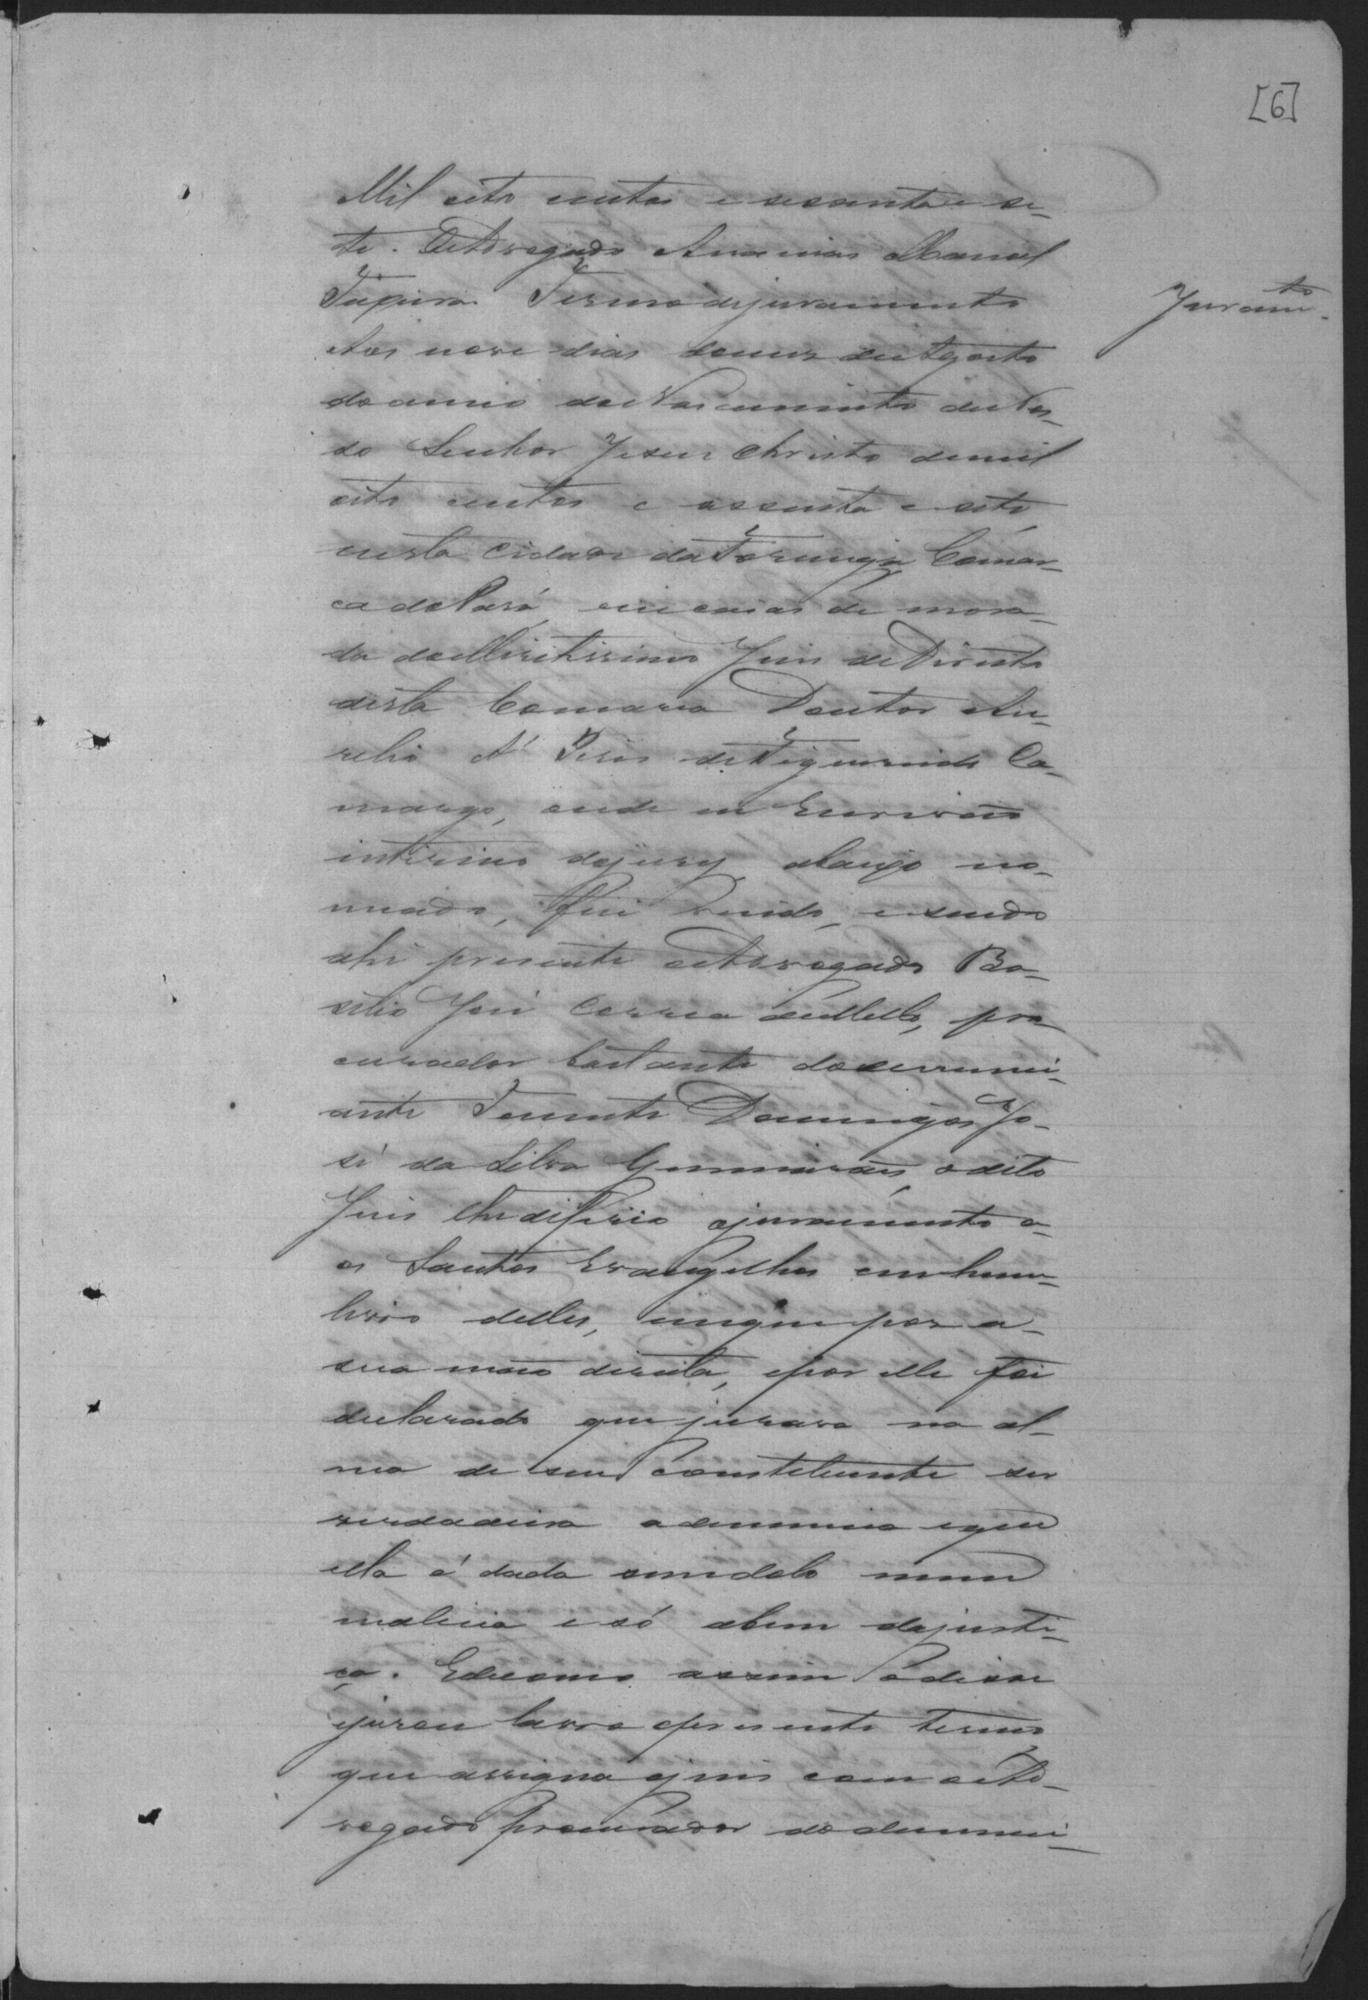 [6]
Mil oito centos e sessenta e se-
te. O Advogado Ananias Manoel
Teixeira. Termo de juramento
Juram.to
Aos nove dias do mez de Agosto
do anno do Nascimento de Nos-
so Senhor Jesus Christo de mil
oito centos e assenta e sete
nesta Cidade da Formiga Comar-
ca do Pará, em casas de mora-
da do Meritissimo Juis de Direito
desta Comarca Doutor Au-
relio A. Pires de Figueiredo Ca-
margo, onde eu Escrivão
interino do jury abaixo no-
meado, fui vindo, e sendo
ahi presente o Advogado Ba-
silio José Correa de Mello, pro
curador bastante do denunci-
ante Tenente Domingos Jo-
sé da Silva Guimarães, o dito
Juis lhe differio o juramento a-
os Santos Evangelhos em hum
livro delles, em que poz a-
sua mão direita, e por elle foi
declarado que jurava na al-
ma de seu Constituinte ser
verdadeira a denuncia e que
ella é dada sem dolo nem
malicia e só a bem da justi-
ça. E de como assim o disse
e jurou lavro o presente termo
que assigna o juis com o Ad-
vogado Procurador do denunci-